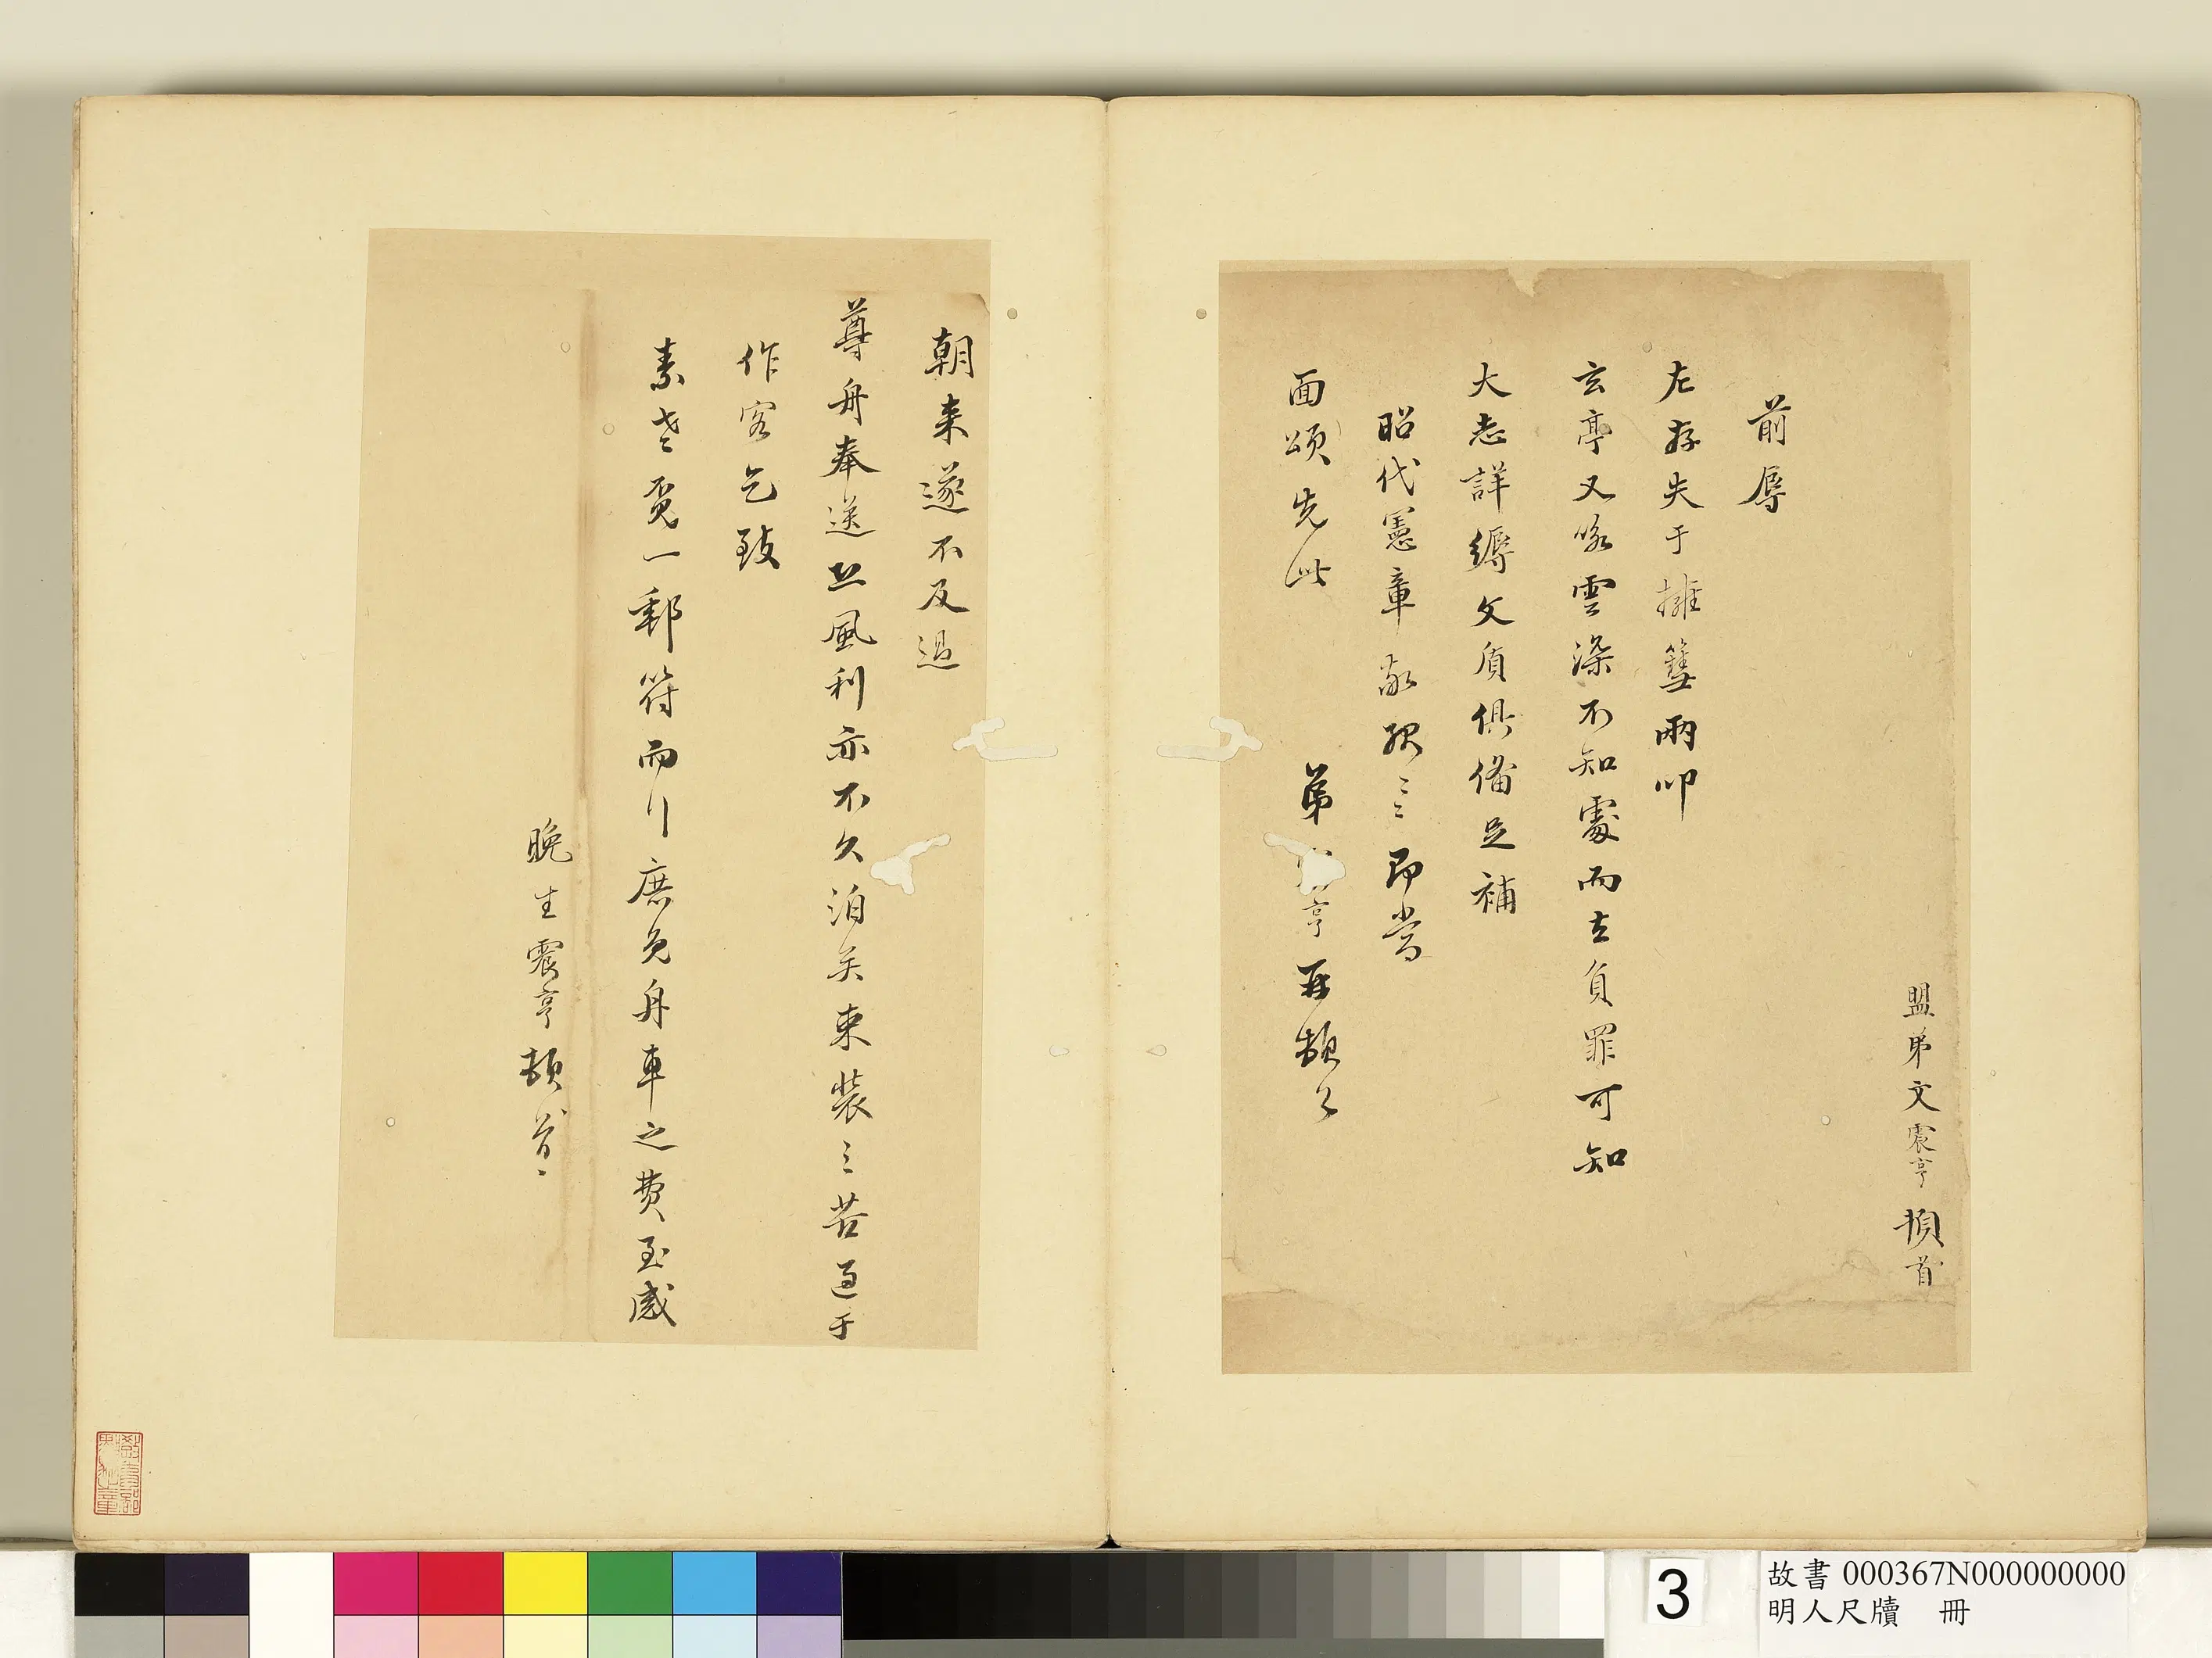 盟弟文震亨頓首
前辱
左存失于擁篲兩叩
玄亭又以雲深不知處而去負罪可知
大志詳縟文質俱備足補
昭代憲章敬服〻〻即當
面頌先此
弟 亨再頓
朝來遂不及過
尊舟奉送且風利亦不久泊关束裝〻苦過于
作客乞致
素老覓一郵符而行庶免舟車之費至感
晚生震亨頓首
3
故書 000367N000000000
明人尺牘 冊